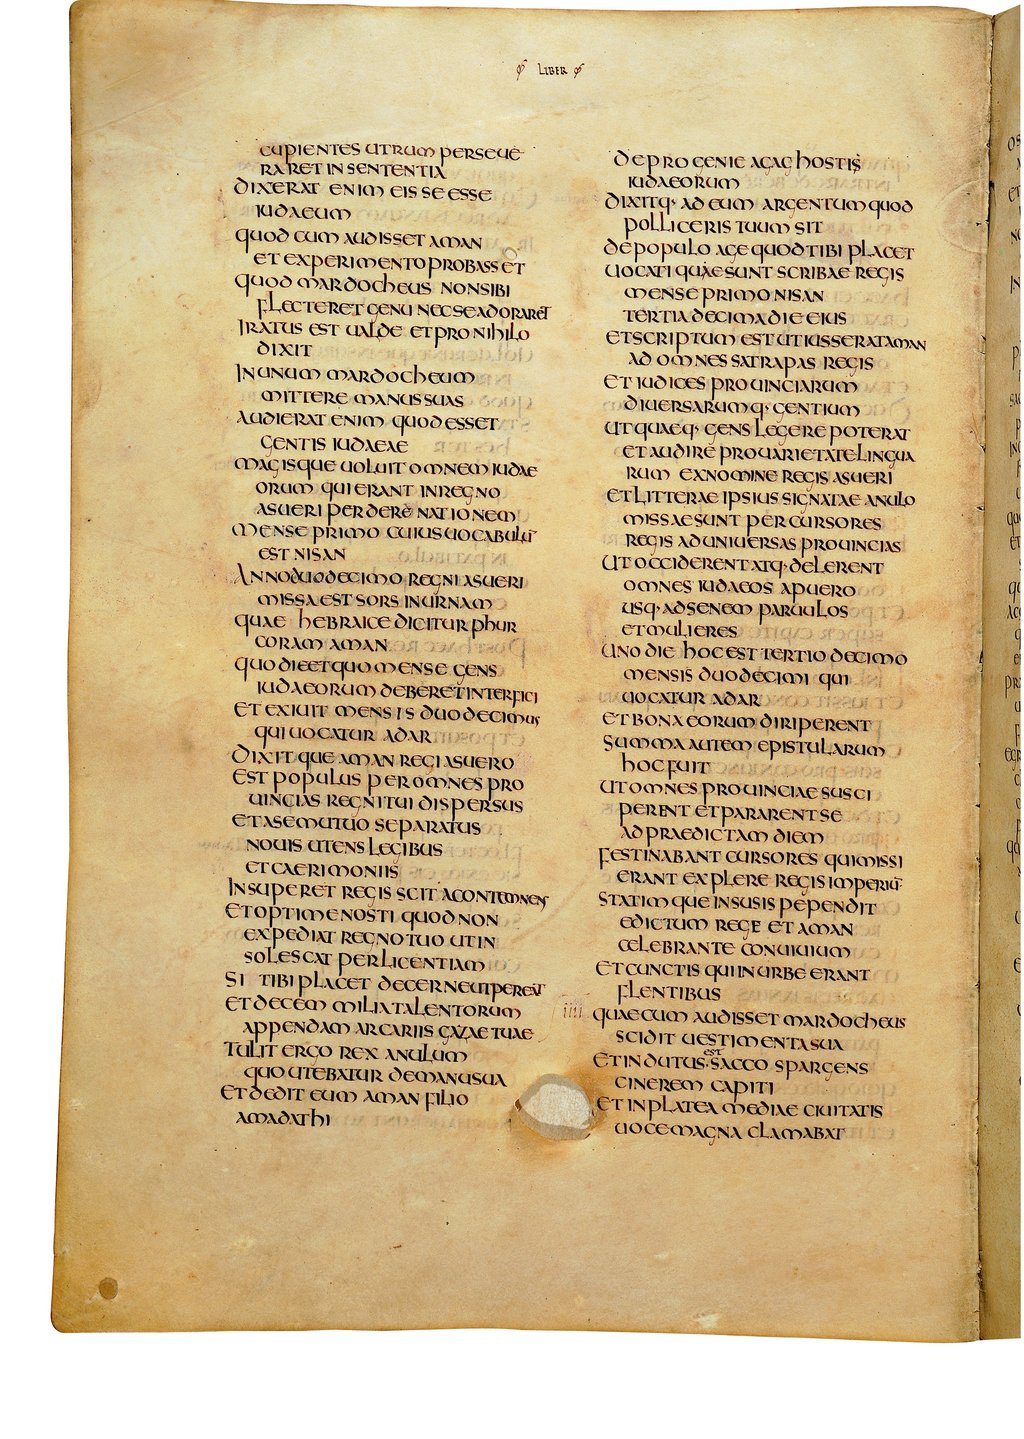 LIBER
CUPIENTES UTRUM PERSEUE
RARET IN SENTENTIA
DIXERAT ENIM EIS SE ESSE
IUDAEUM
QUOD CUM AUDISSET AMAN
ET EXPERIMENTO PROBASSET
QUOD MARDOCHEUS NON SIBI
FLECTERET GENU NEC SE ADORARET
IRATUS EST UALDE ET PRO NIHILO
DIXIT
IN UNUM MARDOCHEUM
MITTERE MANUS SUAS
AUDIERAT ENIM QUOD ESSET
GENTIS IUDAEAE
MAGISQUE UOLUIT OMNEM IUDAE
ORUM QUI ERANT IN REGNO
ASUERI PERDERE NATIONEM
MENSE PRIMO CUIUS UOCABULŪ
EST NISAN
ANNO DUODECIMO REGNI ASUERI
MISSA EST SORS IN URNAM
QUAE HEBRAICE DICITUR PHUR
CORAM AMAN
QUO DIE ET QUO MENSE GENS
IUDAEORUM DEBERET INTERFICI
ET EXIUIT MENSIS DUODECIMUS
QUI UOCATUR ADAR
DIXITQUE AMAN REGI ASUERO
EST POPULUS PER OMNES PRO
UINCIAS REGNI TUI DISPERSUS
ET A SE MUTUO SEPARATUS
NOUIS UTENS LEGIBUS
ET CAERIMONIIS
INSUPER ET REGIS SCITA CONTEMNENS
ET OPTIME NOSTI QUOD NON
EXPEDIAT REGNO TUO UT IN
SOLESCAT PER LICENTIAM
SI TIBI PLACET DECERNE UT PEREAT
ET DECEM MILIA TALENTORUM
APPENDAM ARCARIIS GAZAE TUAE
TULIT ERGO REX ANULUM
QUO UTEBATUR DE MANU SUA
ET DEDIT EUM AMAN FILIO
AMADATHI
DE PROGENIE AGAG HOSTIS
IUDAEORUM
DIXITQ· AD EUM ARGENTUM QUOD
POLLICERIS TUUM SIT
DE POPULO AGE QUOD TIBI PLACET
UOCATI QUAE SUNT SCRIBAE REGIS
MENSE PRIMO NISAN
TERTIA DECIMA DIE EIUS
ET SCRIPTUM EST UT IUSSERAT AMAN
AD OMNES SATRAPAS REGIS
ET IUDICES PROUINCIARUM
DIUERSARUMQ· GENTIUM
UT QUAEQ· GENS LEGERE POTERAT
ET AUDIRE PRO UARIETATE LINGUA
RUM EX NOMINE REGIS ASUERI
ET LITTERAE IPSIUS SIGNATAE ANULO
MISSAE SUNT PER CURSORES
REGIS AD UNIUERSAS PROUINCIAS
UT OCCIDERENT ATQ· DELERENT
OMNES IUDAEOS A PUERO
USQ· AD SENEM PARUULOS
ET MULIERES
UNO DIE HOC EST TERTIO DECIMO
MENSIS DUODECIMI QUI
UOCATUR ADAR
ET BONA EORUM DIRIPERENT
SUMMA AUTEM EPISTULARUM
HOC FUIT
UT OMNES PROUINCIAE SUSCI
PERENT ET PARARENT SE
AD PRAEDICTAM DIEM
FESTINABANT CURSORES QUI MISSI
ERANT EXPLERE REGIS IMPERIŪ
STATIMQUE IN SUSIS PEPENDIT
EDICTUM REGE ET AMAN
CELEBRANTE CONUIUIUM
ET CUNCTIS QUI IN URBE ERANT
FLENTIBUS
IIII QUAE CUM AUDISSET MARDOCHEUS
SCIDIT UESTIMENTA SUA
ET INDUTUS EST SACCO SPARGENS
CINEREM CAPITI
ET IN PLATEA MEDIAE CIUITATIS
UOCE MAGNA CLAMABAT